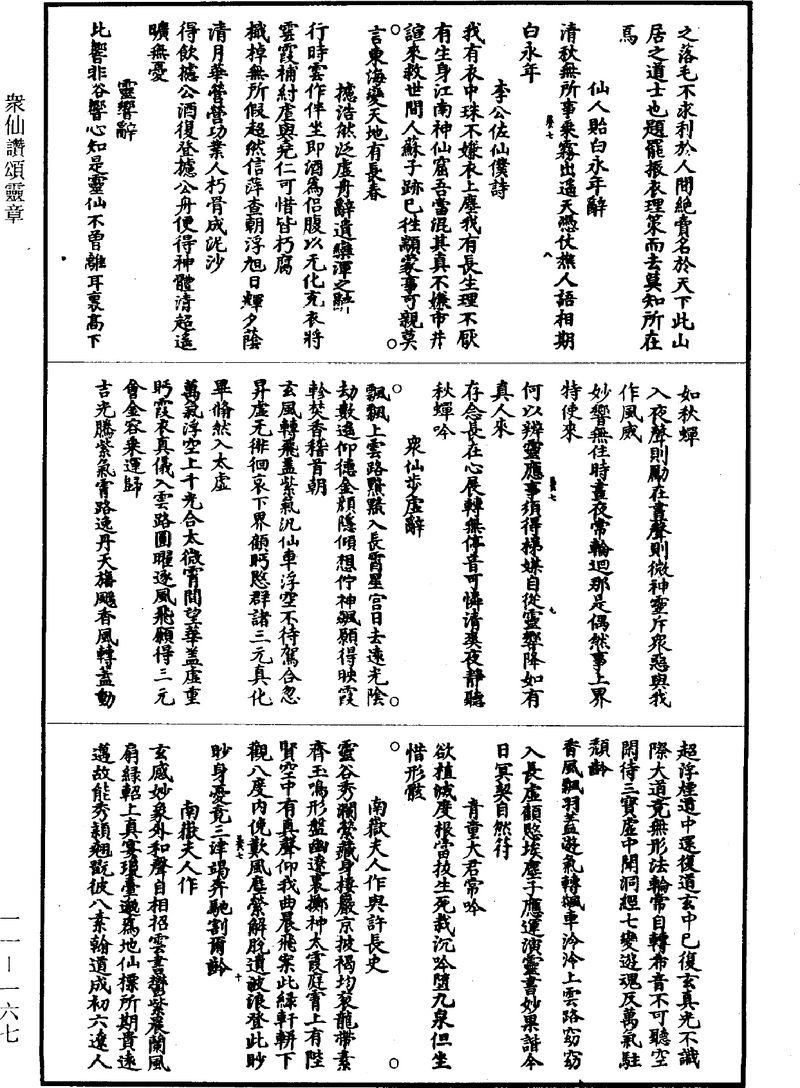 衆仙讚頌靈章
一一—一六七
之落毛不求利於人間絶賣名於天下此山
居之道士也題罷振衣理策而去莫知所在
焉
仙人貽白永年辭
清秋無所事乘霧出遥天憑仗樵人語相期
白永年
李公佐仙僕詩
我有衣中珠不嫌衣上塵我有長生理不厭
有生身江南神仙窟吾當混其真不嫌市井
諠來救世間人蘇子跡已往顓蒙事可親莫
言東海變天地有長春
攄浩然泛虚舟辭遺欒渾之融
行時雲作伴坐即酒爲侣腹以元化充衣將
雲霞補紂虐與堯仁可惜皆朽腐
檝棹無所假超然信萍查朝浮旭日輝夕蔭
清月華營營功業人朽骨成泥沙
得飲攄公酒復登攄公舟便得神體清超遥
曠無憂
靈響辭
此響非谷響心知是靈仙不曾離耳裏高下
如秋蟬
入夜聲則勵在晝聲則微神靈斥衆惡與我
作風威
妙響無住時晝夜常輪迴那是偶然事上界
特使來
何以辨靈應事須得梯媒自從靈響降如有
真人來
存念長在心展轉無停音可憐清爽夜静聽
秋蟬吟
衆仙步虚辭
飄飄上雲路黯黯入長霄星官日去遠光陰
劫數遥仰德金顔隱傾想佇神飇願得映霞
軫焚香稽首朝
玄風轉飛蓋紫氣汎仙車浮空不待駕合忽
昇虚无徘徊哀下界顧眄愍群諸三元真化
畢翛然入太虚
萬氣浮空上千光合太微霄間望華蓋虚重
眄霞衣真儀入雲路圓曜逐風飛願得三元
會金容乘運歸
吉光騰紫氣霄路逸丹天旛颺香風轉蓋動
超浮煙道中還復道玄中已復玄真光不識
際大道竟無形法輪常自轉希音不可聽空
閑待三寶虚中開洞經七變遊魂反萬氣駐
頽齡
香風飄羽蓋遊氣轉飇車泠泠上雲路窈窈
入長虚顧愍埃塵子應運演靈書妙果諧今
日冥契自然符
青童大君常吟
欲植滅度根當拔生死栽沉吟墮九泉但坐
惜形骸
南嶽夫人作與許長史
靈谷秀瀾縈藏身棲巖京披褐均衮龍帶素
齊玉鳴形盤幽遼裏擲神太霞庭霄上有陛
賢空中有真聲仰我曲晨飛案此緑軒軿下
觀八度内俛歎風塵縈解脱遺波浪登此眇
眇身憂竟三津竭奔馳割爾齡
南嶽夫人作
玄感妙象外和聲自相招雲書鬱紫晨蘭風
扇緑軺上真宴瓊臺邈爲地仙標所期貴遠
邁故能秀穎翹翫彼八素翰道成初六遼人